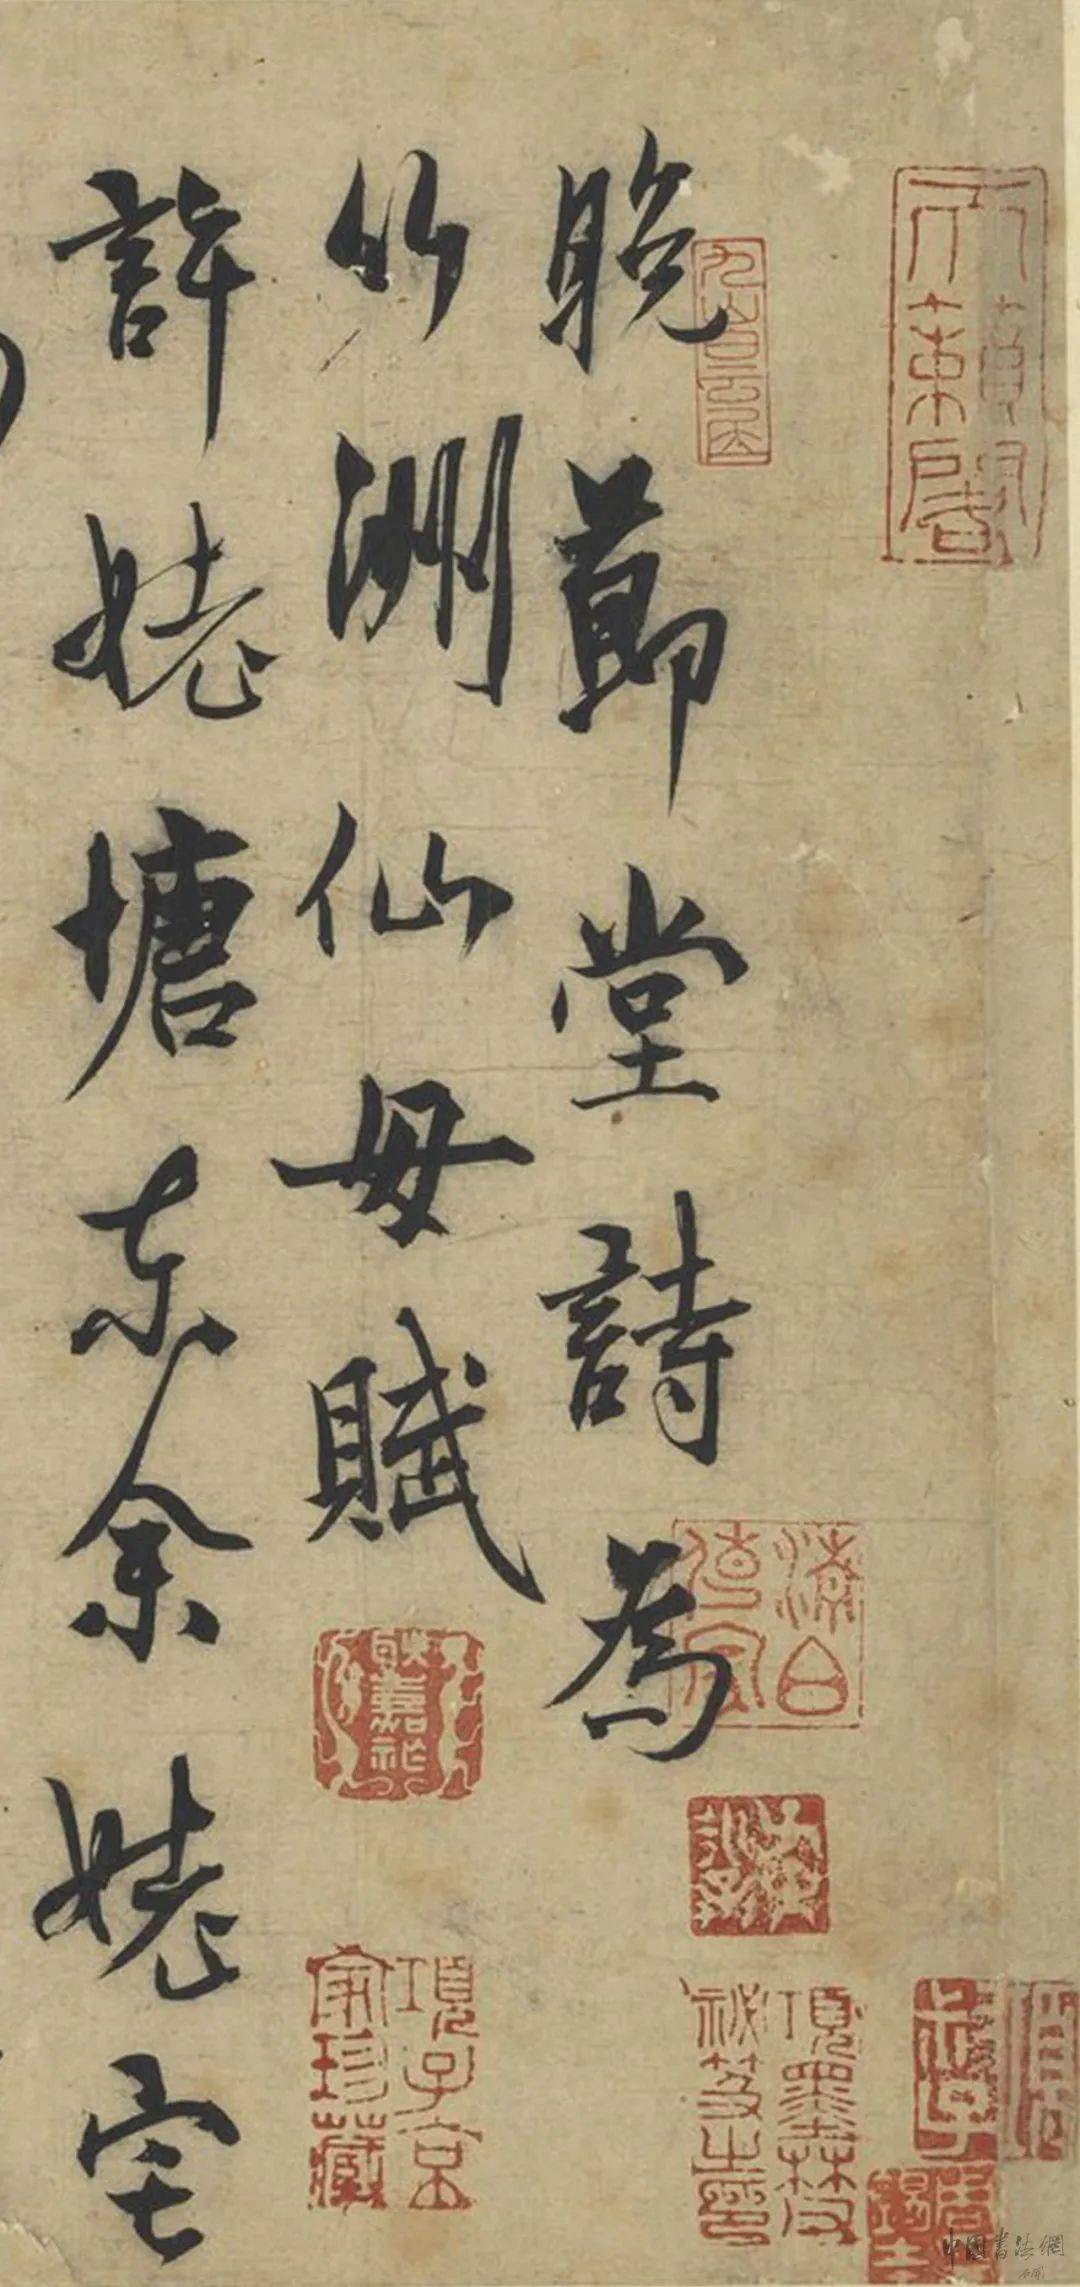 晚節堂詩為
竹洲仙母賦
許姥塘東余姥宅
項墨林父祕笈之印
項子京家珍藏
中國書法網